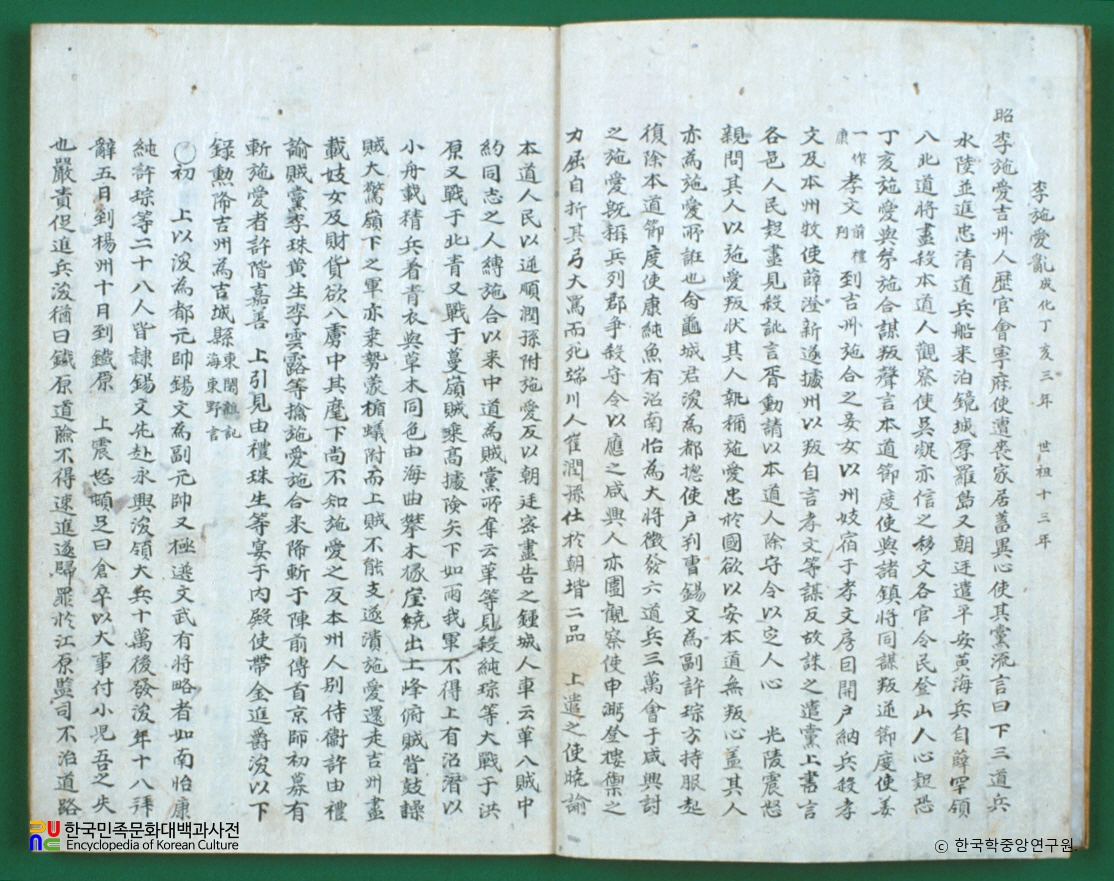 李施愛亂 成化丁亥三年 世祖十三年
昭李施愛吉州人歷官會寧府使遭喪家居蓄異心使其黨流言曰下三道兵
水陸並進忠清道兵船来泊鏡城厚羅島又朝廷遣平安黃海兵自薛罕領
入北道將盡殺本道人觀察使吳凝亦信之移文各官令民登山人心疑恐
丁亥施愛與弟施合謀叛聲言本道節度使與諸鎮將同謀叛適節度使姜
一作康 孝文 前禮判 到吉州施合之妾女以州妓宿于孝文房曰開户納兵殺孝
文及本州牧使薛澄新遂據州以叛自言孝文等謀反故誅之遣黨上書言
各邑人民起盡見殺訛言胥動請以本道人除守令以安人心 光陵震怒
親問其人以施愛叛状其人執稱施愛忠於國欲以安本道無叛心盖其人
亦為施愛所誑也命龜城君浚為都摠使户判曹錫文為副許琮方持服起
復除本道節度使康純魚有沼南怡為大將徵發六道兵三萬會于咸興討
之施愛旣稱兵列郡爭殺守令以應之咸興人亦圍觀察使申㴐登樓禦之
力屈自折其弓大罵而死端川人崔潤孫仕於朝堦二品 上遣之使曉諭
本道人民以逆順潤孫附施愛反以朝廷密盡告之鍾城人車云革入賊中
約同志之人縛施合以来中道為賊黨所奪云革等見殺純琮等大戰于洪
原又戰于北青又戰于蔓嶺賊乘高據險矢下如雨我軍不得上有沼潛以
小舟載精兵着青衣與草木同色由海曲攀木緣崖繞出上峰俯賊背鼓譟
賊大驚嶺下之軍亦乘勢蒙楯蟻附而上賊不能支遂潰施愛還走吉州盡
載妓女及財貨欲入虜中其麾下尚不知施愛之反本州人別侍衛許由禮
諭賊黨李珠黄生李雲露等擒施愛施合来降斬于陣前傳首京師初募有
斬施愛者許階嘉善 上引見由禮珠生等宴于内殿使帶金進爵浚以下
錄勲降吉州為吉城縣 東閣雜記 海東野言
○初 上以浚為都元帥錫文為副元帥又極選文武有將略者如南怡康
純許琮等二十八人皆隷錫文先赴永興浚領大兵十萬後發浚年十八拜
辭五日到楊州十日到鐵原 上震怒頓足曰倉卒以大事付小児吾之失
也嚴責促進兵浚猶曰鐵原道險不得速進遂歸罪於江原監司不治道路
한국민족문화대백과사전
Encyclopedia of Korean Culture
ⓒ 한국학중앙연구원